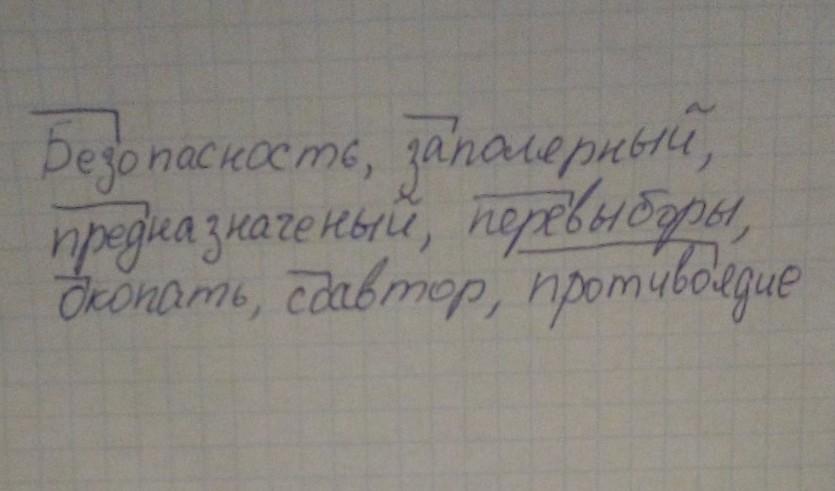 Безопасность, заполярный,
предназначеный, перевыборы,
окопать, соавтор, противоядие